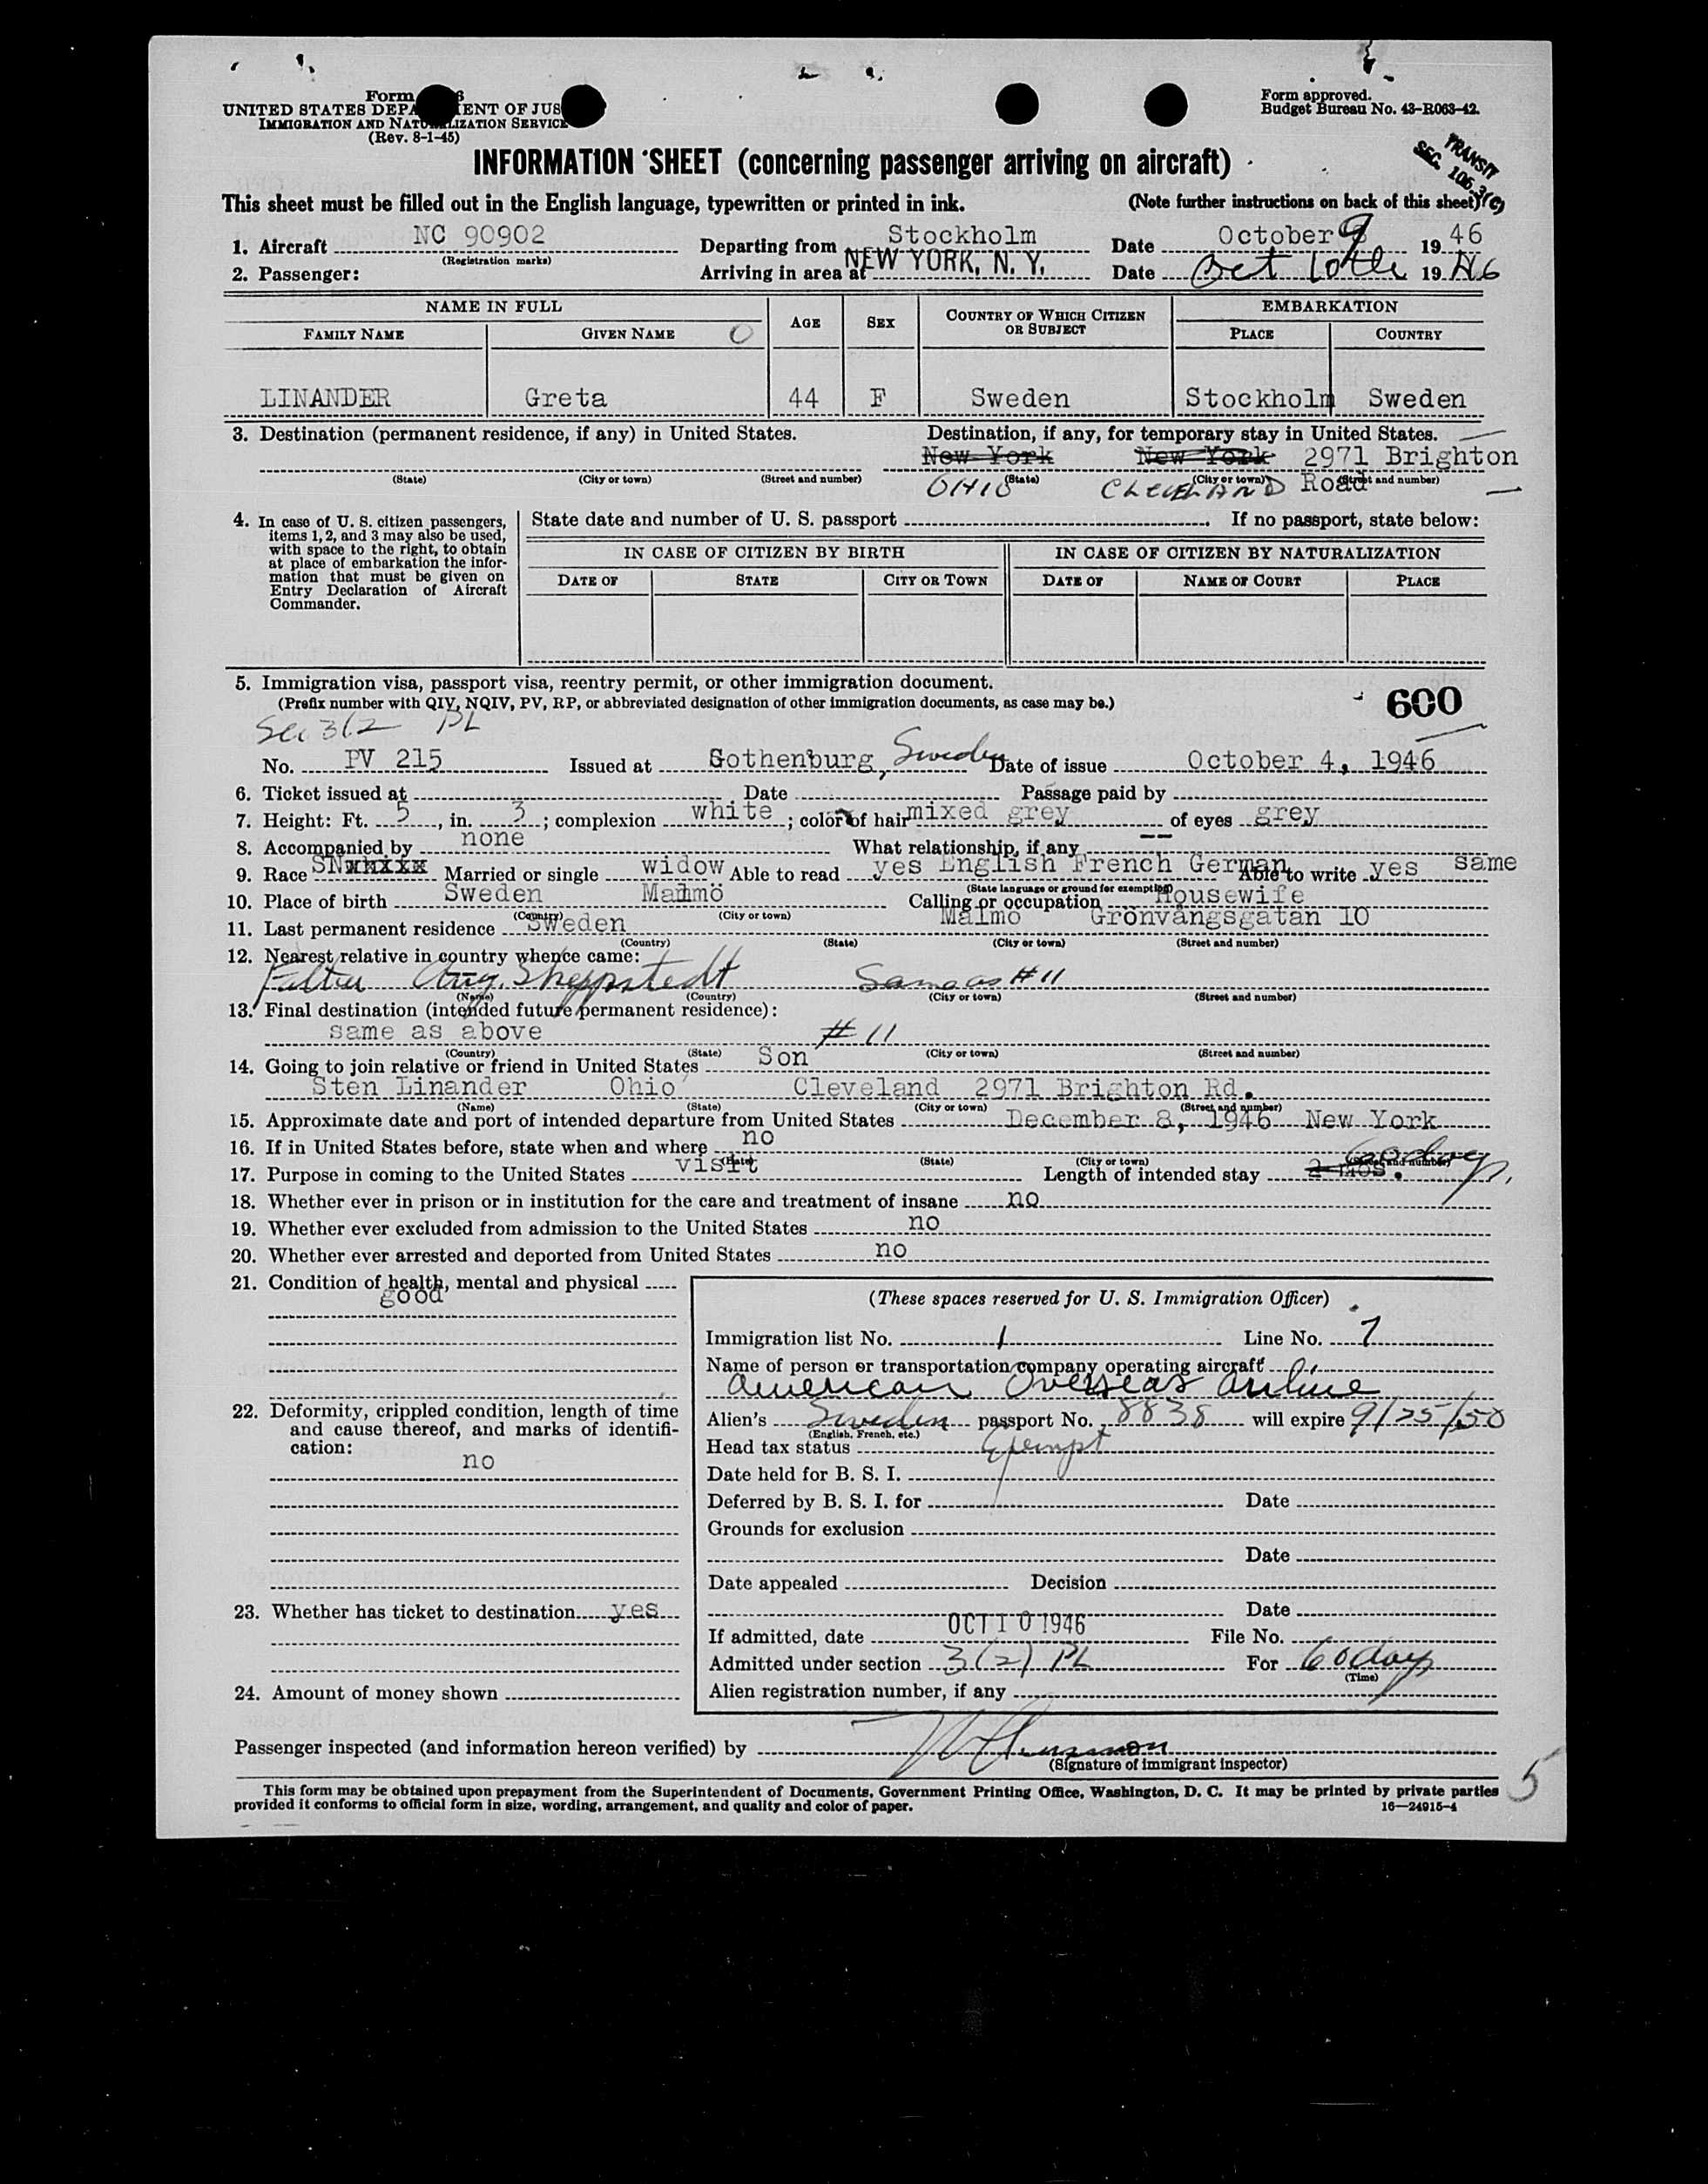 Form
UNITED STATES DEPA ENT OF JUS
IMMIGRATION AND NATURALIZATION SERVICE
(Rev. 8-1-45)
Form approved.
Budget Bureau No. 43-R063-42.
TRANSIT
SEC. 106.3(c)
INFORMATION SHEET (concerning passenger arriving on aircraft)
This sheet must be filled out in the English language, typewritten or printed in ink. (Note further instructions on back of this sheet)
1. Aircraft NC 90902 Departing from Stockholm Date October 9 1946
(Registration marks)
2. Passenger: Arriving in area at NEW YORK, N. Y. Date Oct 10th 1946
NAME IN FULL AGE SEX COUNTRY OF WHICH CITIZEN OR SUBJECT EMBARKATION
FAMILY NAME GIVEN NAME PLACE COUNTRY
LINANDER Greta 44 F Sweden Stockholm Sweden
3. Destination (permanent residence, if any) in United States. Destination, if any, for temporary stay in United States.
New York New York 2971 Brighton
(State) (City or town) (Street and number) (State) (City or town) (Street and number)
OHIO CLEVELAND Road
4. In case of U. S. citizen passengers, items 1, 2, and 3 may also be used, with space to the right, to obtain at place of embarkation the information that must be given on Entry Declaration of Aircraft Commander.
State date and number of U. S. passport If no passport, state below:
IN CASE OF CITIZEN BY BIRTH IN CASE OF CITIZEN BY NATURALIZATION
DATE OF STATE CITY OR TOWN DATE OF NAME OF COURT PLACE
5. Immigration visa, passport visa, reentry permit, or other immigration document.
(Prefix number with QIV, NQIV, PV, RP, or abbreviated designation of other immigration documents, as case may be.) 600
Sec 3(2 PL
No. PV 215 Issued at Gothenburg, Sweden Date of issue October 4, 1946
6. Ticket issued at Date Passage paid by
7. Height: Ft. 5, in. 3; complexion white; color of hair mixed grey of eyes grey
8. Accompanied by none What relationship, if any --
9. Race SN Married or single widow Able to read yes English French German Able to write yes same
(State language or ground for exemption)
10. Place of birth Sweden Malmö Calling or occupation Housewife
(Country) (City or town)
11. Last permanent residence Sweden Malmö Grönvangsgatan 10
(Country) (State) (City or town) (Street and number)
12. Nearest relative in country whence came:
Father Aug. Sheppstedt Same as #11
(Name) (Country) (City or town) (Street and number)
13. Final destination (intended future permanent residence):
same as above #11
(Country) (State) (City or town) (Street and number)
14. Going to join relative or friend in United States Son
Sten Linander Ohio Cleveland 2971 Brighton Rd.
(Name) (State) (City or town) (Street and number)
15. Approximate date and port of intended departure from United States December 8, 1946 New York
16. If in United States before, state when and where no
(Date) (State) (City or town) (Street and number)
17. Purpose in coming to the United States visit Length of intended stay 2 mos. 60 days
18. Whether ever in prison or in institution for the care and treatment of insane no
19. Whether ever excluded from admission to the United States no
20. Whether ever arrested and deported from United States no
21. Condition of health, mental and physical
good
22. Deformity, crippled condition, length of time and cause thereof, and marks of identification:
no
23. Whether has ticket to destination yes
24. Amount of money shown
(These spaces reserved for U. S. Immigration Officer)
Immigration list No. 1 Line No. 7
Name of person or transportation company operating aircraft
American Overseas Airline
Alien's Sweden passport No. 8838 will expire 9/25/50
(English, French, etc.)
Head tax status Exempt
Date held for B. S. I.
Deferred by B. S. I. for Date
Grounds for exclusion
Date
Date appealed Decision
Date
If admitted, date OCT 10 1946 File No.
Admitted under section 3(2) PL For 60 days
(Time)
Alien registration number, if any
Passenger inspected (and information hereon verified) by
(Signature of immigrant inspector)
5
This form may be obtained upon prepayment from the Superintendent of Documents, Government Printing Office, Washington, D. C. It may be printed by private parties
provided it conforms to official form in size, wording, arrangement, and quality and color of paper. 16—24915-4